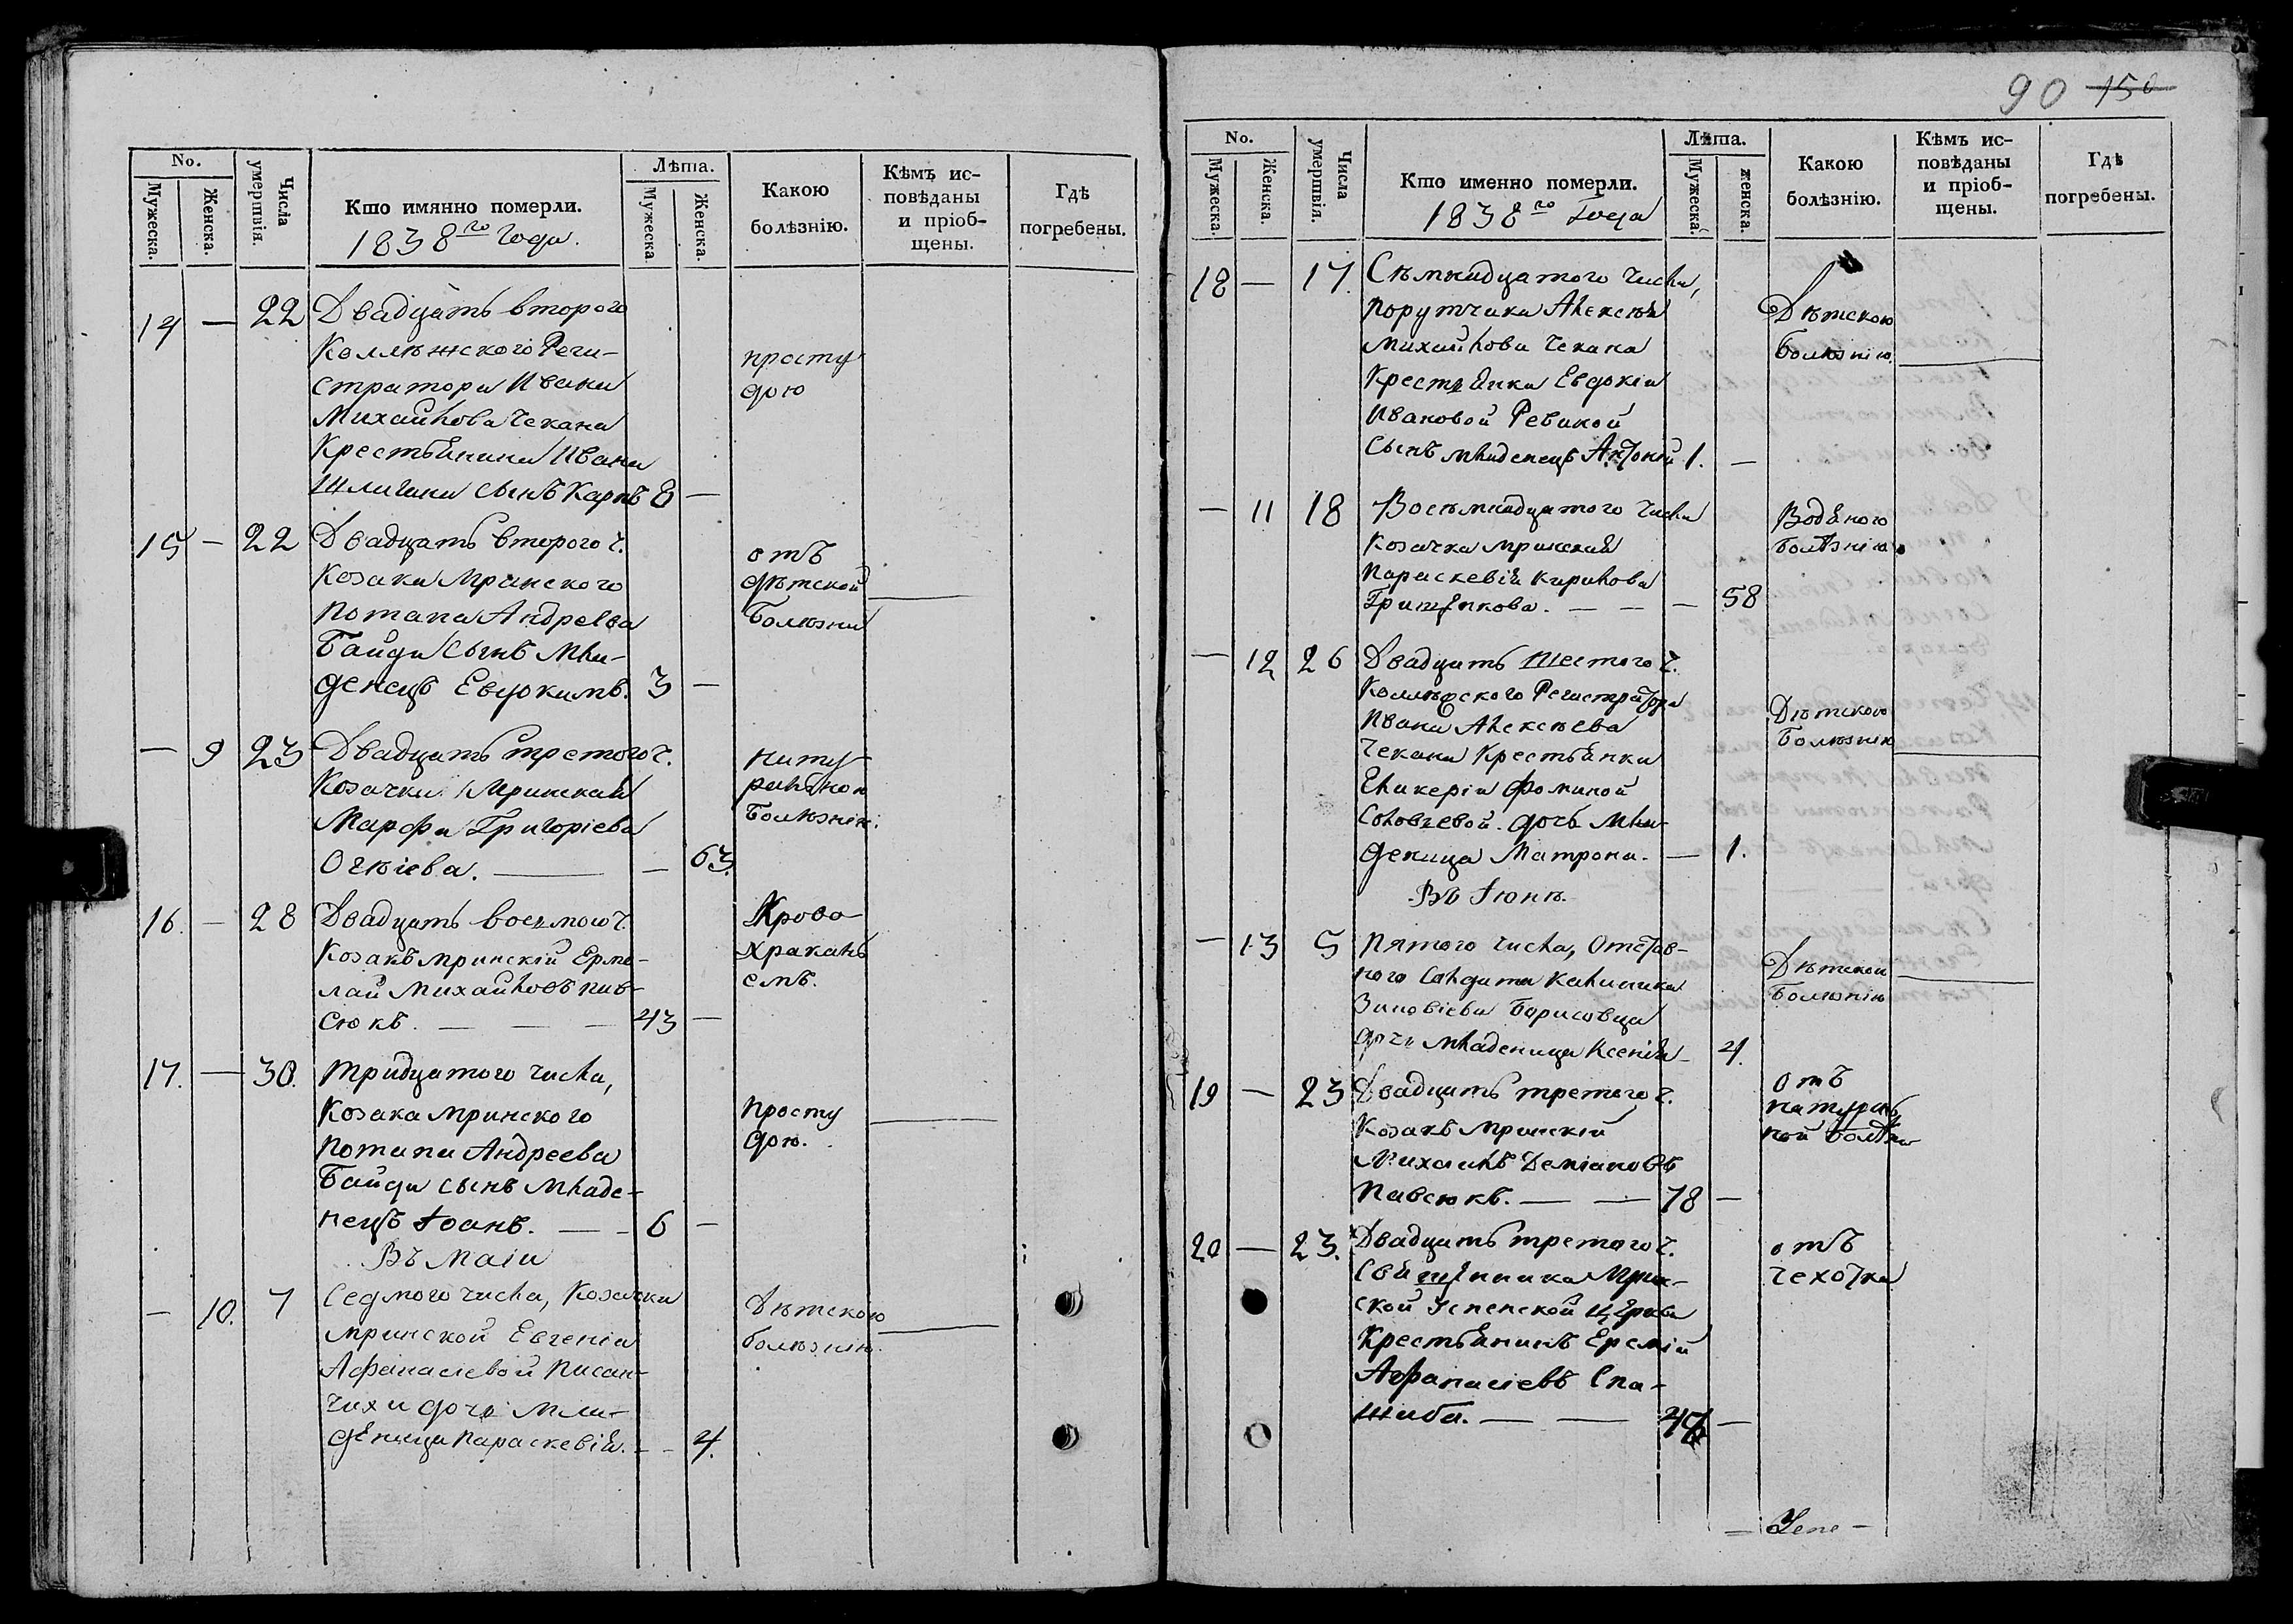 90 150
No.
Мужеска.
Женска.
Числа умершвія.
Кто имянно померли.
1838го года.
Лѣта.
Мужеска
Женска.
Какою болѣзнію.
Кѣмъ исповѣданы и пріобщены.
Гдѣ погребены.
14 — 22 Двадцать второго
Коллѣжского Реги-
стратора Ивана
Михайлова Чекана
Крестьянина Ивана
сынъ Карпъ 8 —
просту
дою
15 — 22 Двадцать второго ч.
Козака Мринского
Потапа Андреева
Байди сынъ мла-
денецъ Евдокимъ. 3 —
отъ
дѣтской
болѣзни
— 9 23 Двадцать третого ч.
Козачка Мринская
Марфа Григоріева
Огнієва. — — 63.
нату
ральною
болѣзнію.
16. — 28 Двадцать восьмого ч.
Козакъ мринскій Ермо-
лай Михайловъ пав-
сюкъ. — — — 43 —
Крово
хракань
емъ.
17. — 30. тридцатого числа,
Козака мринского
Потапа Андреева
Байди сынъ младе-
нецъ Іоанъ. — — 6 —
просту
дою.
Въ Маіи
— 10. 7 Седмого числа, Козачки
мринской Евгеніи
Афанасіевой Писан-
чихи дочь мла-
деница Параскевія. — — 4.
дѣтскою
болѣзнію.
No.
Мужеска.
Женска.
Числа умершвія.
Кто именно померли.
1838го года
Лѣта.
Мужеска.
женска.
Какою болѣзнію.
Кѣмъ исповѣданы и пріобщены.
Гдѣ погребены.
18 — 17. Сѣмнадцатого числа,
порутчика Алексѣя
Михайлова Чекана
Крестьянки Евдокіи
Ивановой Ревакой
сынъ младенецъ Антоній 1. —
Дѣтскою
болѣзнію.
— 11 18 Восѣмнадцатого числа
Козачка мринская
Параскевія Кирилова
Грищенкова. — — — 58
Водяною
болѣзнію.
— 12 26 Двадцать шестого ч.
Коллѣжского Регистратора
Ивана Алексѣева
Чекана Крестьянки
Гликеріи Фоминой
Соловьевой дочь мла-
деница Матрона. — 1.
Дѣтскою
Болѣзнію
Въ Іюнѣ.
— 13 5 Пятого числа, Отстав-
ного Солдата Калиника
Зиновіева Борисовца
дочь младеница Ксенія — 4.
Дѣтской
болѣзнію
19 — 23 Двадцать третого ч.
Козакъ мринскій
Михаилъ Деміановъ
Павсюкъ. — — 78 —
отъ
натураль
ной болѣзни
20 — 23. Двадцать третого ч.
Священника Мрин-
ской Успенской церкви
Крестьянинъ Еремій
Афанасіевъ Спа-
отъ
чехотки